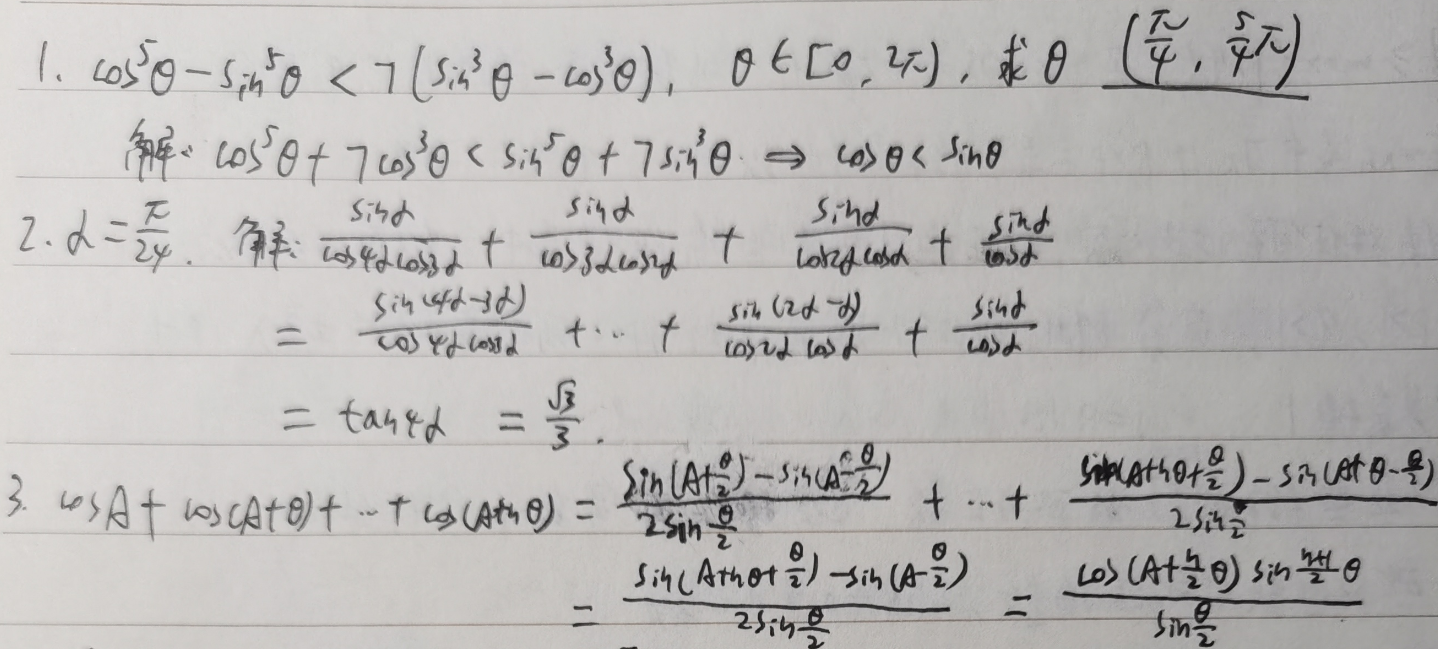 1. cos⁵θ - sin⁵θ < 7(sin³θ - cos³θ), θ∈[0, 2π), 求θ (π/4, 5/4π)
解: cos⁵θ + 7cos³θ < sin⁵θ + 7sin³θ. ⇒ cosθ < sinθ
2. α = π/24. 解: sinα/(cos4αcos3α) + sinα/(cos3αcos2α) + sinα/(cos2αcosα) + sinα/cosα
= sin(4α-3α)/(cos4αcos3α) + ... + sin(2α-α)/(cos2αcosα) + sinα/cosα
= tan4α = √3/3.
3. cosA + cos(A+θ) + ... + cos(A+nθ) = (sin(A+θ/2) - sin(A-θ/2))/(2sin θ/2) + ... + (sin(A+nθ+θ/2) - sin(A+θ-θ/2))/(2sin θ/2)
= (sin(A+nθ+θ/2) - sin(A-θ/2))/(2sin θ/2) = (cos(A+n/2 θ) sin (n+1)/2 θ)/(sin θ/2)